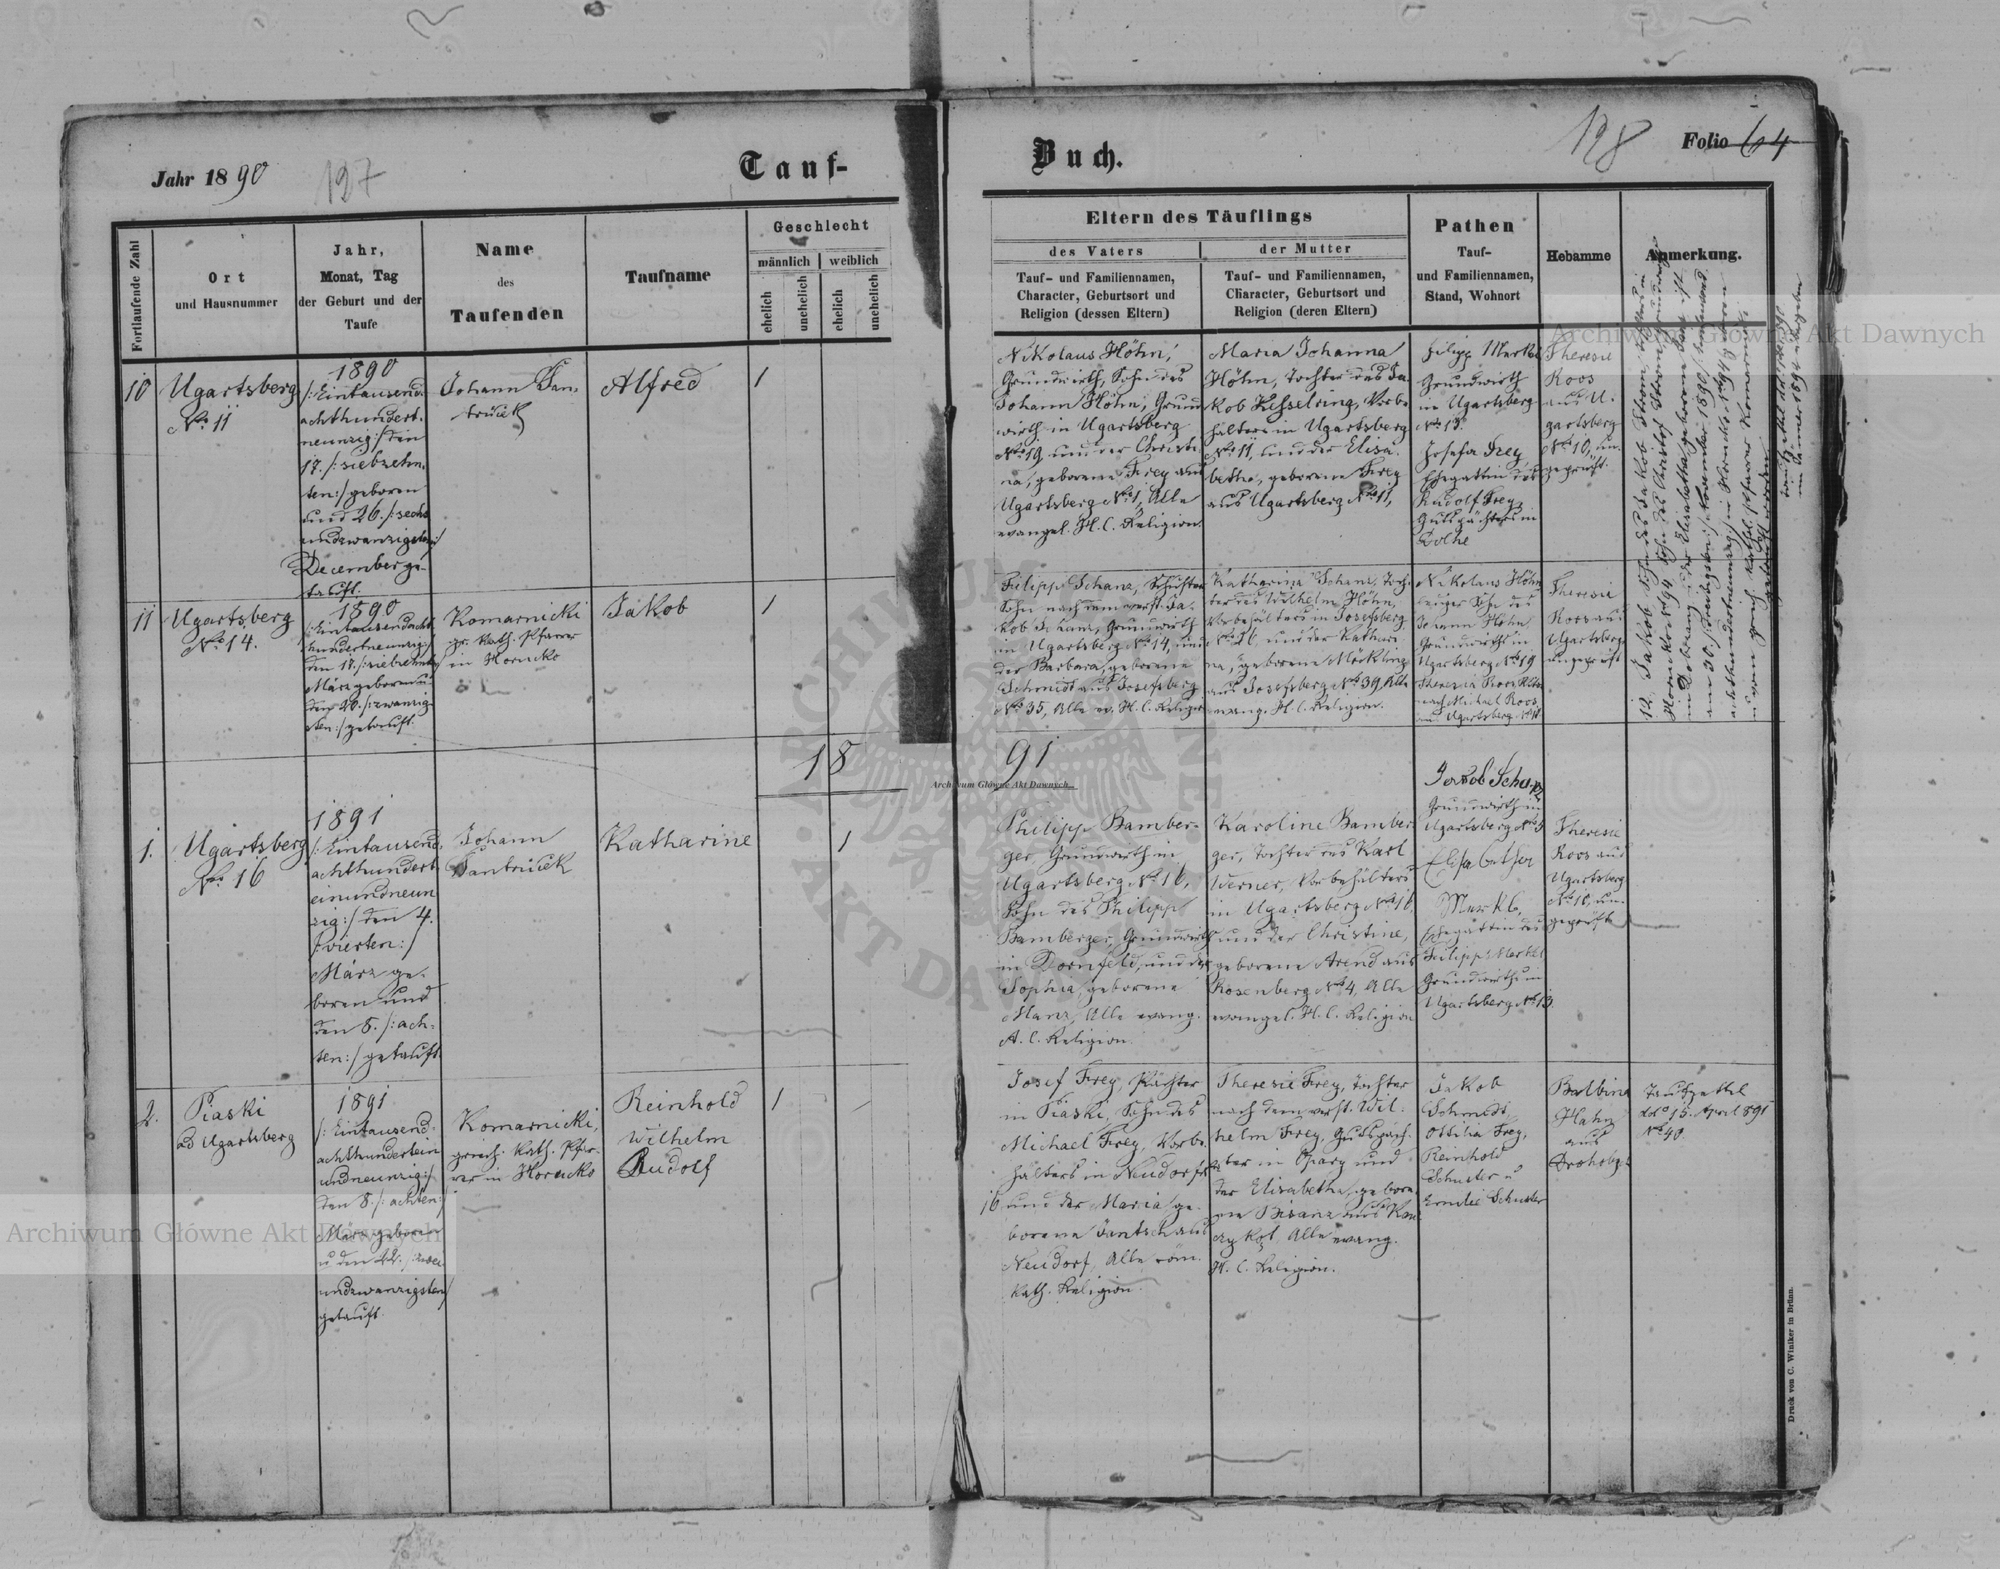 Jahr 1890
127
Tauf-
Buch.
128
Folio 64
Fortlaufende Zahl
Ort
und Hausnummer
Jahr,
Monat, Tag
der Geburt und der
Taufe
Name
des
Taufenden
Taufname
Geschlecht
männlich
weiblich
ehelich
unehelich
ehelich
unehelich
Eltern des Täuflings
des Vaters
Tauf- und Familiennamen,
Character, Geburtsort und
Religion (dessen Eltern)
der Mutter
Tauf- und Familiennamen,
Character, Geburtsort und
Religion (deren Eltern)
Pathen
Tauf-
und Familiennamen,
Stand, Wohnort
Hebamme
Anmerkung.
10
Ugartsberg
No 11
1890
/: Eintausend
achthundert
neunzig:/ den
17. /: siebzehn-
ten:/ geboren
und 26. /: sechs
undzwanzigsten:/
December ge-
tauft.
Johann Jan-
Alfred
1
Nikolaus Höhn,
Grundwirth, Sohn des
Johann Höhn, Grund
wirth in Ugartsberg
No 19 und der Christi-
na, geborene Frey aus
Ugartsberg No 1, Alle
evangel. H. C. Religion.
Maria Johanna
Höhn, Tochter des Ja-
kob Kesselring, Vorbe
hälters in Ugartsberg
No 11, und der Elisa-
betha, geborene Frey
aus Ugartsberg No 11,
Filipp Merkl
Grundwirth
in Ugartsberg
No 13.
Josefa Frey,
Ehegattin des
Rudolf Frey
Gutspächters in
Theresie
Roos
aus U-
gartsberg
No 10, un-
geprüft.
11
Ugartsberg
No 14.
1890
/: Eintausendacht
hundertneunzig:/
den 17. /: siebzehnten
März geboren u.
den 20. /: zwanzig-
sten:/ getauft.
Komarnicki
gr. kath. Pfarrer
in Horucko
Jakob
1
Filipp Schanz, Schuster
Sohn nach dem verst. Ja-
kob Schanz, Grundwirth
in Ugartsberg No 14, und
der Barbara, geborene
Schmidt aus Josefsberg
No 35, Alle ev. H. C. Religion
Katharina Schanz, Toch-
ter des Wilhelm Höhn,
Vorbehälters in Josefsberg
No 26 und der Kathari-
na, geborene Möckling
aus Josefsberg No 39, Alle
evang. H. C. Religion.
Nikolaus Höhn
lediger Sohn des
Johann Höhn
Grundwirths in
Ugartsberg No 19
Theresia Roos
nach Michael Roos,
in Ugartsberg
Theresie
Roos aus
Ugartsberg
ungeprüft
12. Jakob, Sohn des Jakob Strom,
1891
1.
Ugartsberg
No 16
1891
/: Eintausend
achthundert
einundneun
zig:/ den 4.
/: vierten:/
März ge-
boren und
den 8. /: ach-
ten:/ getauft.
Johann
Katharine
1
Philipp Bamber-
ger, Grundwirth in
Ugartsberg No 16,
Sohn des Philipp
Bamberger, Grundwirth
in Dornfeld, und der
Sophia, geborene
Manz, Alle evang.
A. C. Religion.
Karoline Bamber
ger, Tochter des Karl
Werner, Vorbehälters
in Ugartsberg No 16,
und der Christine,
geborene Arend aus
Rosenberg No 4, Alle
evangel. H. C. Religion
Jakob Schanz
Grundwirth in
Ugartsberg No 5
Elisabetha
Merkl,
Ehegattin des
Filipp Merkl
Grundwirth in
Ugartsberg No 13
Theresie
Roos aus
Ugartsberg
No 10, un-
geprüft
2.
Piaski
ad Ugartsberg
1891
/: Eintausend-
achthundertein
undneunzig:/
den 8. /: achten:/
März geboren
u. den 22. /: zwei
undzwanzigsten:/
getauft.
Komarnicki,
griech. kath. Pfar-
rer in Horucko
Reinhold
Wilhelm
Rudolf
1
Josef Frey, Pächter
in Piaski, Sohn des
Michael Frey, Vorbe-
hälters in Neudorf No
16 und der Maria ge-
borene Jantsch aus
Neudorf, Alle röm.
kath. Religion.
Theresie Frey, Tochter
nach dem verst. Wil-
helm Frey, Gutspäch-
ter in Opary und
der Elisabetha, gebore-
ne Bisanz aus
Alle evang.
H. C. Religion.
Jakob
Schmidt,
Ottilia Frey,
Reinhold
Schuster u
Emilie Schuster
Balbina
Hahn
aus
Drohobycz
Taufzettel
ddo 15. April 891
No 40
Druck von C. Winiker in Brünn.
Archiwum Główne Akt Dawnych
Archiwum Główne Akt Dawnych
Archiwum Główne Akt Dawnych
ARCHIWUM GŁÓWNE AKT DAWNYCH